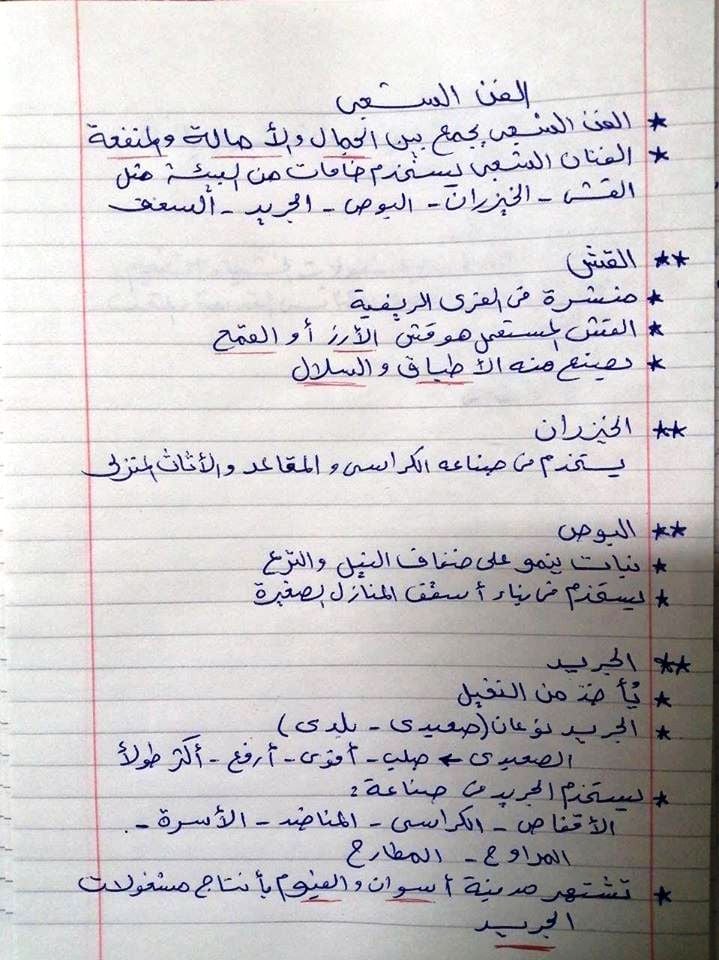 الفن الشعبى
* الفن الشعبى يجمع بين الجمال والأصالة والمنفعة
* الفنان الشعبى يستخدم خامات من البيئة مثل
القش - الخيزران - البوص - الجريد - السعف
** القش
* منتشرة فى القرى الريفية
* القش المستعمل هو قش الأرز أو القمح
* يصنع منه الأطباق والسلال
** الخيزران
يستخدم فى صناعه الكراسى و المقاعد والأثاث المنزلى
** البوص
* نبات ينمو على ضفاف النيل والترع
* يستخدم فى بناء أسقف المنازل الصغيرة
** الجريد
* يُأخذ من النخيل
* الجريد نوعان (صعيدى - بلدى)
الصعيدى ← صلب - أقوى - أرفع - أكثر طولاً
* يستخدم الجريد فى صناعة :
الأقفاص - الكراسى - المناضد - الأسرة -
المراوح - المطارح
* تشتهر مدينة أسوان والفيوم بأنتاج مشغولات
الجريد